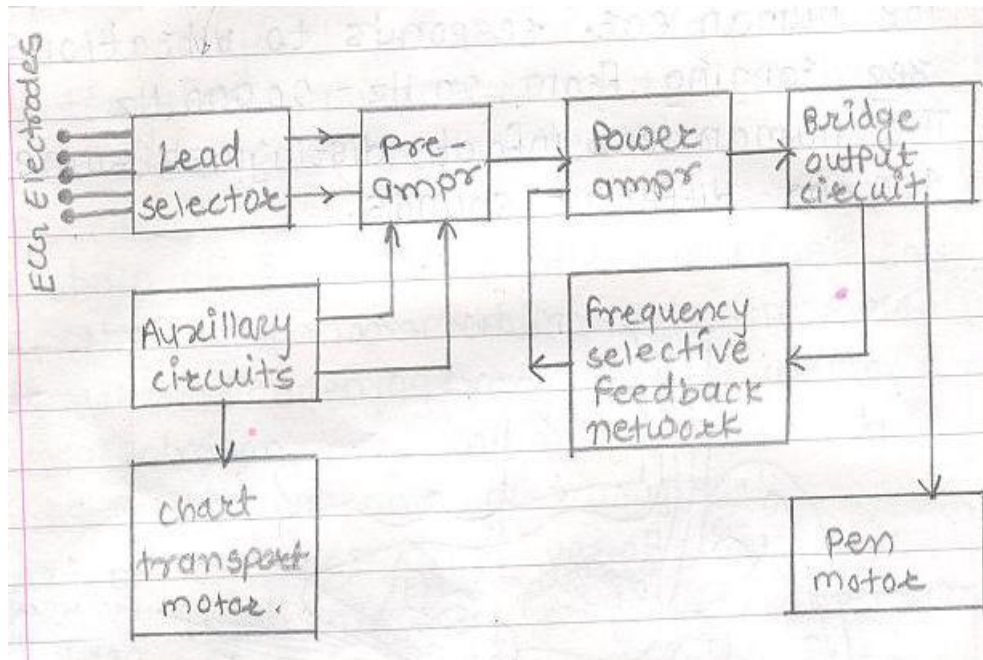 ECG Electrodes
Lead
selector
Pre-
ampr
Power
ampr
Bridge
output
circuit
Auxillary
circuits
Frequency
selective
feedback
network
chart
transport
motor.
Pen
motor